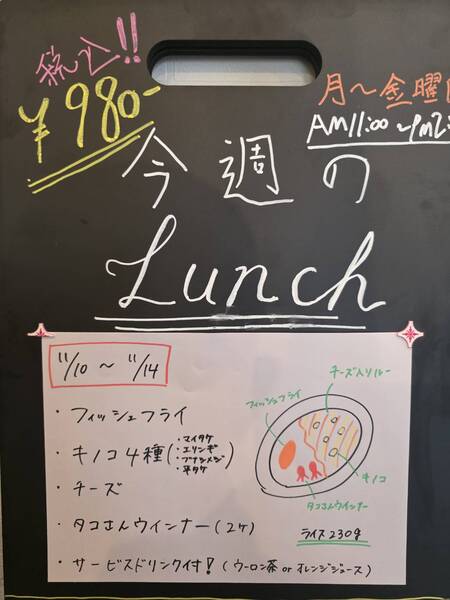 税込!!
¥980-
月~金曜日
AM11:00~PM2:
今週の
Lunch
11/10 ~ 11/14
・フィッシュフライ
・キノコ4種(・マイタケ ・エリンギ ・ブナシメジ ・平タケ)
・チーズ
・タコさんウインナー(2ケ)
・サービスドリンク付!(ウーロン茶 or オレンジジュース)
チーズ入りルー
フィッシュフライ
キノコ
タコさんウインナー
ライス230g